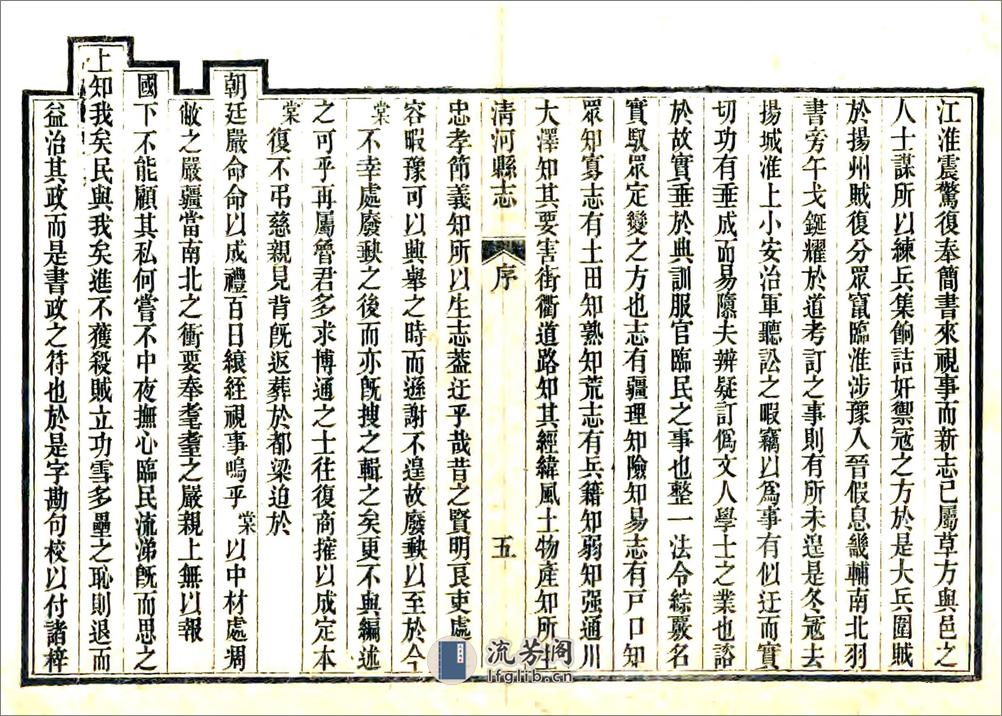 江淮震驚復奉簡書來視事而新志已屬草方與邑之
人士謀所以練兵集餉詰奸禦寇之方於是大兵圍賊
於揚州賊復分眾竄臨淮涉豫入晉假息畿輔南北羽
書旁午戈鋋耀於道考訂之事則有所未遑是冬寇去
揚城淮上小安治軍聽訟之暇竊以爲事有似迂而實
切功有垂成而易隳夫辨疑訂僞文人學士之業也諮
於故實垂於典訓服官臨民之事也整一法令綜覈名
實馭眾定變之方也志有疆理知險知易志有戸口知
眾知寡志有土田知熟知荒志有兵籍知弱知强通川
大澤知其要害街衢道路知其經緯風土物產知所
清河縣志 序 五
忠孝節義知所以生志葢迂乎哉昔之賢明良吏處
容暇豫可以興舉之時而遜謝不遑故廢軼以至於今
棠不幸處廢軼之後而亦旣搜之輯之矣更不與編述
之可乎再屬魯君多求博通之士往復商搉以成定本
棠復不弔慈親見背旣返葬於都梁迫於
朝廷嚴命命以成禮百日縗絰視事嗚乎棠以中材處凋
敝之嚴疆當南北之衝要奉耄耋之嚴親上無以報
國下不能顧其私何嘗不中夜撫心臨民流涕旣而思之
上知我矣民與我矣進不獲殺賊立功雪多壘之恥則退而
益治其政而是書政之符也於是字勘句校以付諸梓
流芳閣
lfglib.cn